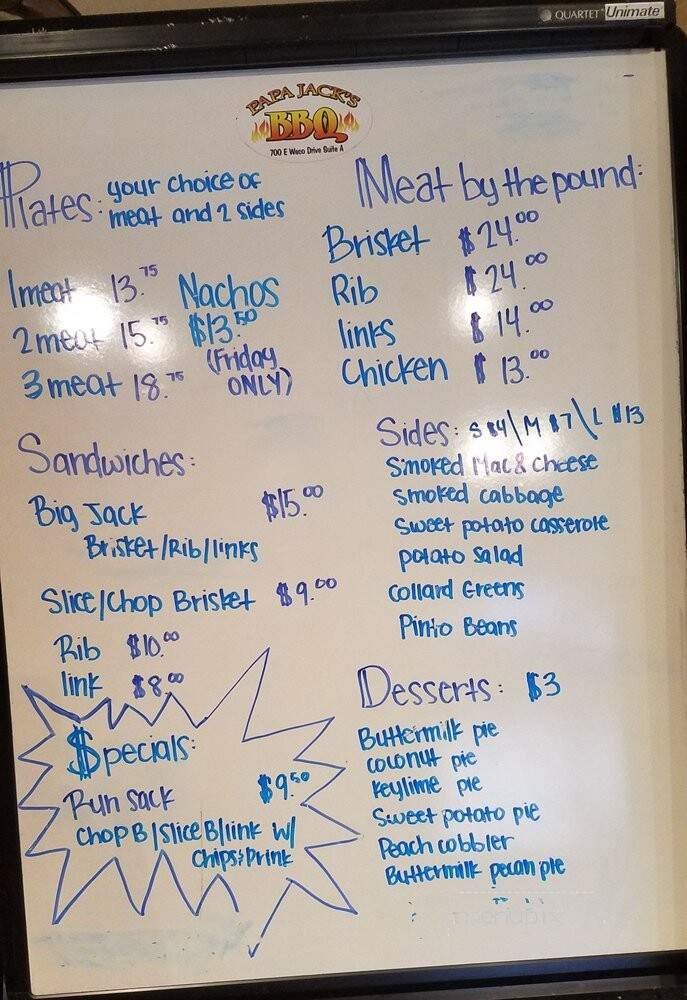 QUARTET Unimate
PAPA JACK'S
BBQ
700 E Waco Drive Suite A
Plates: your choice of
meat and 2 sides
1 meat 13.75
2 meat 15.75
3 meat 18.75
Nachos
$13.50
(Friday
ONLY)
Sandwiches:
Big Jack $15.00
Brisket/Rib/links
Slice/Chop Brisket $9.00
Rib $10.00
link $8.00
$pecials:
Run sack $9.50
Chop B/Slice B/link w/
Chips & Drink
Meat by the pound:
Brisket $24.00
Rib $24.00
links $14.00
Chicken $13.00
Sides: S $4\M $7\L $13
Smoked Mac & cheese
smoked cabbage
Sweet potato casserole
potato salad
collard Greens
Pinto Beans
Desserts: $3
Buttermilk pie
coconut pie
Keylime pie
Sweet potato pie
Peach cobbler
Buttermilk pecan pie